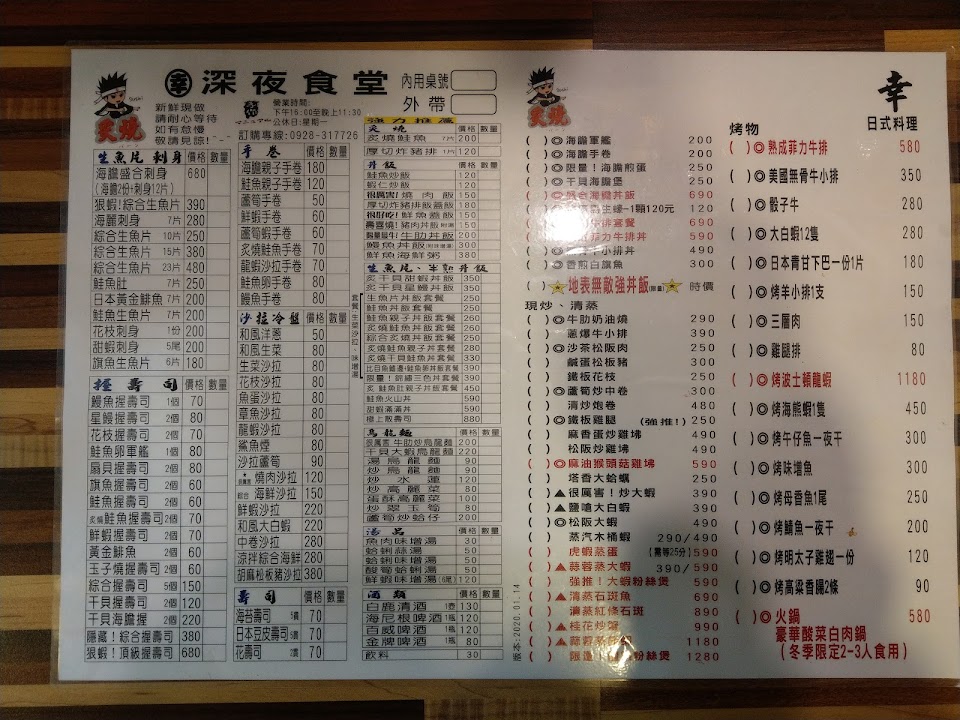 幸 深夜食堂
內用桌號
外帶
新鮮現做
請耐心等待
如有怠慢
敬請見諒!
炙燒
營業時間:
下午16:00至晚上11:30
公休日:星期一
訂購專線:0928-317726
生魚片 刺身 價格 數量
海膽盛合刺身 680
(海膽2份+刺身12片)
狠蝦!綜合生魚片 390
海鱺刺身 7片 250
綜合生魚片 10片 250
綜合生魚片 15片 380
綜合生魚片 23片 480
鮭魚肚 7片 250
日本黃金鯡魚 7片 200
鮭魚生魚片 7片 200
花枝刺身 1份 200
甜蝦刺身 5尾 200
旗魚生魚片 6片 180
握壽司 價格 數量
鰻魚握壽司 1個 70
星鰻握壽司 2個 80
花枝握壽司 2個 60
鮭魚卵軍艦 1個 80
扇貝握壽司 2個 80
旗魚握壽司 2個 60
鮭魚握壽司 2個 60
炙燒鮭魚握壽司 2個 70
鮮蝦握壽司 2個 70
黃金鯡魚 2個 60
玉子燒握壽司 2個 60
綜合握壽司 5個 150
干貝握壽司 2個 120
干貝海膽握 2個 220
隱藏!綜合握壽司 380
狠蝦!頂級握壽司 680
手卷 價格 數量
海膽親子手卷 180
鮭魚親子手卷 120
蘆筍手卷 50
鮮蝦手卷 60
蘆筍蝦手卷 60
炙燒鮭魚手卷 70
龍蝦沙拉手卷 70
鮭魚卵手卷 80
鰻魚手卷 80
沙拉冷盤 價格 數量
和風洋蔥 50
和風生菜 80
生菜沙拉 80
花枝沙拉 80
魚蛋沙拉 80
章魚沙拉 80
龍蝦沙拉 80
鯊魚煙 80
沙拉蘆筍 90
燒肉沙拉 120
綜合 海鮮沙拉 150
鮮蝦沙拉 220
和風大白蝦 220
中卷沙拉 280
涼拌綜合海鮮 280
胡麻松板豬沙拉 380
壽司 價格 數量
海苔壽司 70
日本豆皮壽司 70
花壽司 70
強力推薦
炙燒 價格 數量
炙燒鮭魚 7片 200
厚切炸豬排 1片 120
丼飯 價格 數量
鮭魚炒飯 120
蝦仁炒飯 120
狠厲害!燒肉飯 150
厚切炸豬排蓋飯 180
狠好吃!鮮魚蓋飯 150
壽喜燒!豬肉丼飯 150
牛肋丼飯 200
鰻魚丼飯 300
鮭魚海鮮粥 380
生魚片、半熟丼飯
炙干貝甜蝦丼飯 350
炙干貝星鰻丼飯 350
生魚片丼飯套餐 250
鮭魚丼飯套餐 250
炙燒鮭魚丼飯套餐 250
綜合炙燒丼飯套餐 250
炙燒鮭魚親子丼飯套餐 280
炙燒干貝鮭魚丼飯套餐 330
限量!錦繡三色丼飯套餐 390
炙鮭魚肚親子丼飯套餐 450
鮭魚火山丼 590
甜蝦滿滿丼 590
極上散壽司 880
套餐:生菜沙拉、味增湯
烏龍麵 價格 數量
狠厲害 牛肋炒烏龍麵 200
干貝大蝦烏龍麵 220
湯烏龍麵 90
炒烏龍麵 90
炒水蓮 120
炒高麗菜 100
蛋酥高麗菜 100
炒翠玉筍 80
蘆筍炒蛤仔 200
湯品 價格 數量
魚肉味增湯 30
蛤蜊蒜湯 50
蛤蜊味增湯 50
酸筍蛤蜊湯 50
鮮蝦味增湯(碗) 120
酒類 價格 數量
白鹿清酒 1壺 130
海尼根啤酒 1瓶 120
百威啤酒 1瓶 120
金牌啤酒 1瓶 80
飲料 30
版本:2020.01.14
炙燒
( )◎海膽軍艦 200
( )◎海膽手卷 200
( )◎限量!海膽煎蛋 200
( )◎干貝海膽堡 200
( )◎盛合海膽丼飯 690
生蠔-1顆120元 120
牛排套餐 690
菲力牛排丼 590
牛小排丼 490
( )◎香煎白旗魚 300
( )地表無敵強丼飯(限量) 時價
現炒、清蒸
( )◎牛肋奶油燒 290
( ) 蔥爆牛小排 390
( )◎沙茶松阪肉 250
( ) 鹹蛋松板豬 300
( ) 鐵板花枝 250
( )◎蘆筍炒中卷 300
( ) 清炒炮卷 480
( )◎鐵板雞腿 (強推!) 250
( ) 麻香蛋炒雞垹 490
( ) 松阪炒雞垹 490
( )◎麻油猴頭菇雞垹 590
( ) 塔香大蛤蠣 250
( )▲很厲害!炒大蝦 390
( )▲鹽嗆大白蝦 390
( )◎松阪大蝦 490
( ) 蒸汽木桶蝦 290/490
( ) 虎蝦蒸蛋 (需等25分) 590
( )▲蒜蓉蒸大蝦 390/590
( ) 強推!大蝦粉絲煲 590
( )▲清蒸石斑魚 690
( ) 清蒸紅條石斑 890
( )▲桂花炒蟹 990
( )▲ 1180
( ) 粉絲煲 1280
幸
日式料理
烤物
( )◎熟成菲力牛排 580
( )◎美國無骨牛小排 350
( )◎骰子牛 280
( )◎大白蝦12隻 280
( )◎日本青甘下巴一份1片 180
( )◎烤羊小排1支 150
( )◎三層肉 150
( )◎雞腿排 80
( )◎烤波士頓龍蝦 1180
( )◎烤海熊蝦1隻 450
( )◎烤午仔魚一夜干 300
( )◎烤味增魚 300
( )◎烤母香魚1尾 250
( )◎烤鯖魚一夜干 200
( )◎烤明太子雞翅一份 120
( )◎烤高粱香腸2條 90
( )◎火鍋 580
豪華酸菜白肉鍋
(冬季限定2-3人食用)